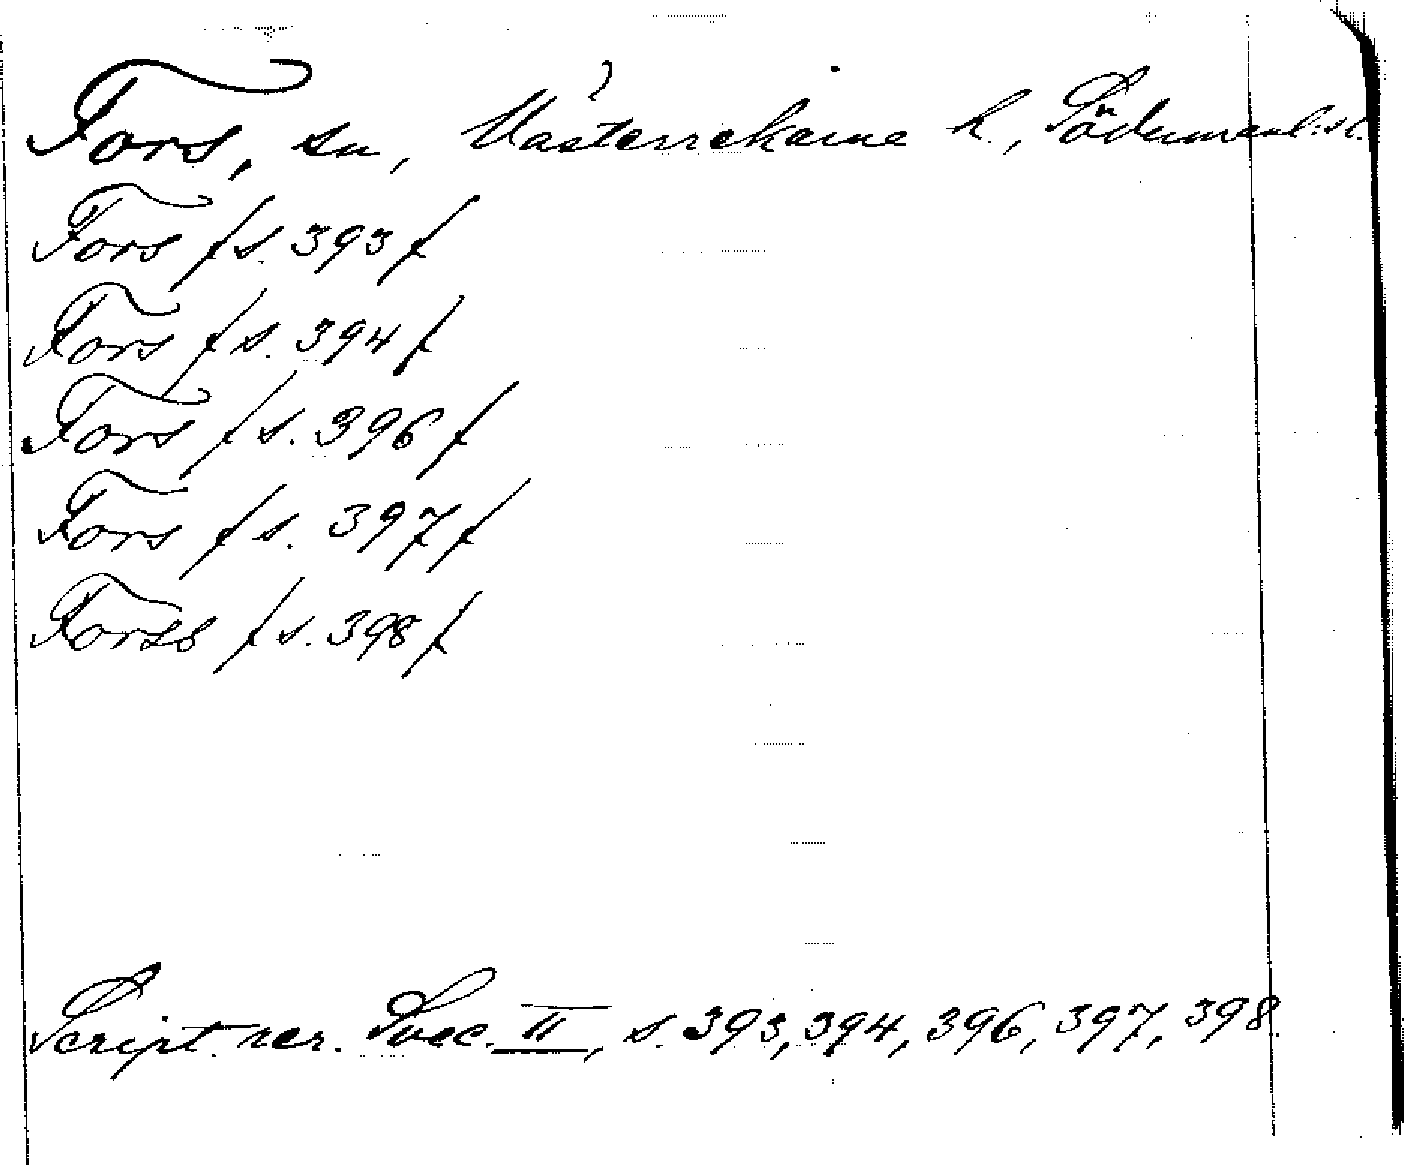 Fors, sn, Västerrekarne h., Södermanl:s l.
Fors /s. 393/
Fors /s. 394/
Fors /s. 396/
Fors /s. 397/
Forss /s. 398/
Script. rer. Svec. II, s. 393, 394, 396, 397, 398.